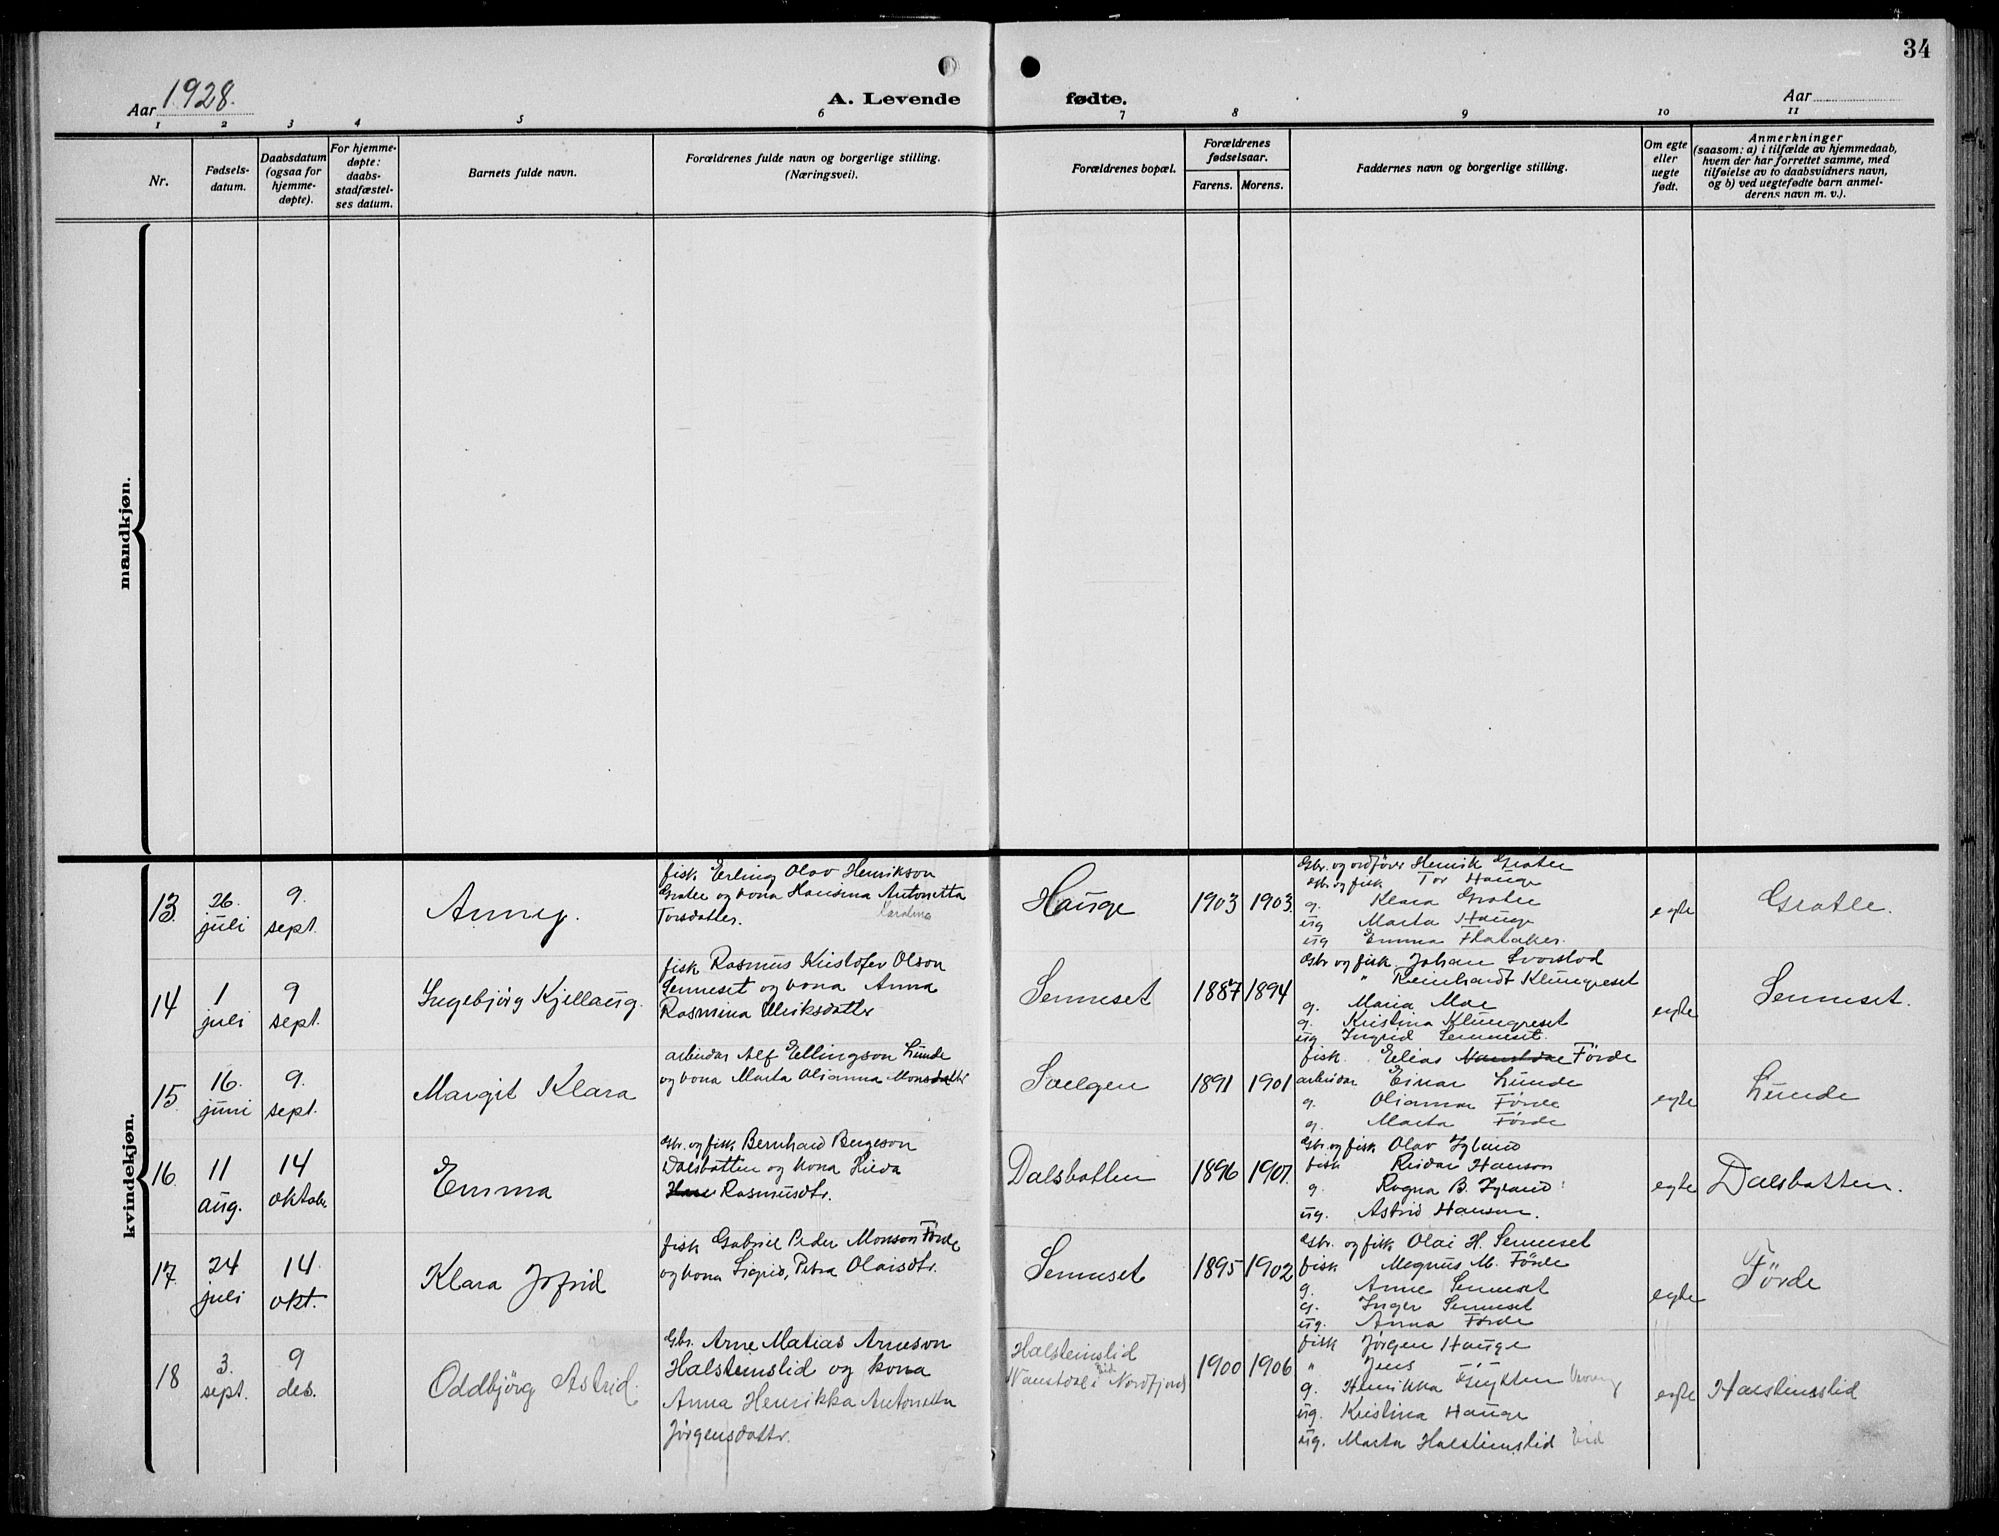 34
Aar 1928.
A. Levende fødte.
Aar
1 2 3 4 5 6 7 8 9 10 11
Nr.
Fødsels-
datum.
Daabsdatum
(ogsaa for
hjemme-
døpte).
For hjemme-
døpte:
daabs-
stadfæstel-
ses datum.
Barnets fulde navn.
Forældrenes fulde navn og borgerlige stilling.
(Næringsvei).
Forældrenes bopæl.
Forældrenes
fødselsaar.
Farens. Morens.
Faddernes navn og borgerlige stilling.
Om egte
eller
uegte
født.
Anmerkninger
(saasom: a) i tilfælde av hjemmedaab,
hvem der har forrettet samme, med
tilføielse av to daabsvidners navn,
og b) ved uegtefødte barn anmel-
derens navn m. v.).
mandkjøn.
kvindekjøn.
13.
26.
juli
9.
sept.
Anny.
fisk Erling Olav Henrikson
Grotle og kona Hansina Antonetta
Torsdatter.
Hauge
1903 1903.
Gbr. og ordfører Henrik Grotle
Gbr og fisk Tor Hauge
g. Klara Grotle
ug Marta Hauge
ug Emma Flataker.
egte
Grotle.
14
1
juli
9
sept.
Ingebjörg Kjellaug.
fisk Rasmus Kristofer Olson
Senneset og kona Anna
Rasmina Ulriksdatter
Senneset
1887 1894
Gbr og fisk. Johan
" Reinhardt Klungreset
g. Maria Moe
g. Kristina Klungreset
ug Ingrid Senneset.
egte
Senneset.
15.
16.
juni
9.
sept.
Margit Klara
arbeidar Alf Ellingson Lunde
og kona Marta Olianna Monsdattr
Svelgen
1891 1901
fisk. Elias Förde
arbeidar Einar Lunde
g. Olianna Förde
g. Marta Förde
egte
Lunde
16.
11
aug.
14
oktober
Emma
Gbr. og fisk Bernhard Bergeson
Dalsbotten og kona Hilda
Rasmusdtr.
Dalsbotten
1896 1907.
Gbr. og fisk Olav Hyland
fisk Reidar Hanson
g. Ragna B. Hyland
ug. Astrid Hansen.
egte
Dalsbotten.
17.
24
juli
14.
okt.
Klara Jofrid
fisk Gabriel Peder Monson Förde
og kona Sigrid, Petra Olaisdtr.
Senneset
1895 1902
Gbr. og fisk Olai H. Senneset
fisk Magnus M. Förde
g. Anne Sennesèt
g. Inger Sennset
ug. Anna Förde
egte
Förde
18
3.
sept.
9
des.
Oddbjörg Astrid.
Gbr. Arne Matias Arneson
Halsteinslid og kona
Anna Henrikka Antonetta
Jörgensdattr.
Halsteinslid
Naustdal i Nordfjord
1900 1906
fisk Jørgen Hauge
" Jens
g. Henrikka
ug. Kristina Hauge
ug. Marta Halsteinslid
egte
Halsteinslid